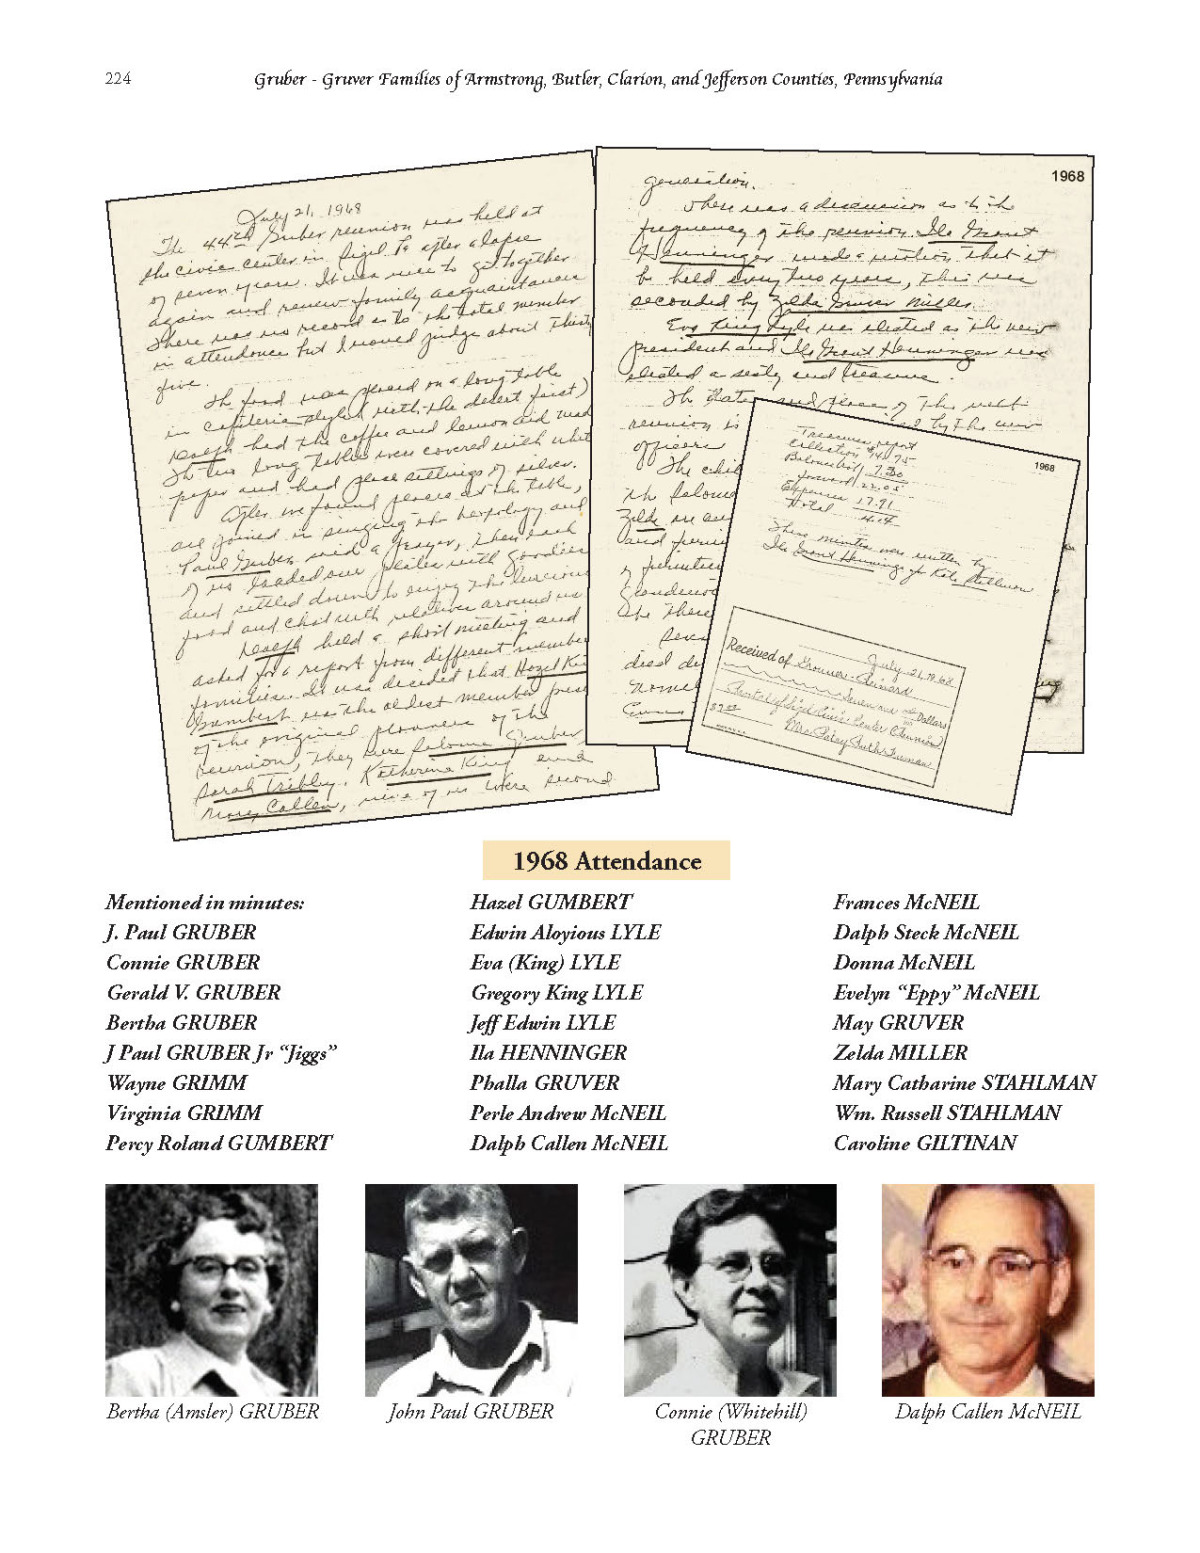 224
Gruber - Gruver Families of Armstrong, Butler, Clarion, and Jefferson Counties, Pennsylvania
July 21, 1968
The 44th Gruber reunion was held at
the civic center in Sigel Pa after a lapse
of seven years. It was nice to get together
again and renew family acquaintances
There was no record as to the total member
in attendance but I would judge about thirty
five.
Th food was placed on a long table
in cafeteria style (with the desert first)
had the coffee and lemon aid made
Th two long tables were covered with white
paper and had place settings of silver.
After we found places at the table,
all joined in singing the doxology and
Paul Gruber said a prayer, then each
of us loaded our plates with goodies
and settled down to enjoy the luscious
food and chat with relatives around us
held a short meeting and
asked for a report from different member
families. It was decided that Hazel Ki
Gumbert was the oldest member pres
of the original planners of the
reunion, they were Salome Gruber,
Sarah Tribley, Katherine King and
Mary Callen, nine of us were second
1968
generation.
There was a discussion as to the
frequency of the reunion. Ila Grant
Henninger made a motion that it
be held every two years, this was
seconded by Zelda Gruver Miller.
Eva King Lyle was elected as the new
president and Ila Grant Henninger was
elected a secty and treasure.
Th date and place of the next
reunion is by the new
officers
The chil
th Salome
Zelda
and
died
1968
Treasurers report
Collection $14.75
Balance 7.30
forward 22.05
Expence 17.91
Total 4.14
These minutes were written by
Ila Grant Henninger for Kate Stallman
Received of
July 21, 1968
Dollars
Rental of Sigel Civic Center (Reunion)
$7.00
Mrs
1968 Attendance
Mentioned in minutes:
J. Paul GRUBER
Connie GRUBER
Gerald V. GRUBER
Bertha GRUBER
J Paul GRUBER Jr “Jiggs”
Wayne GRIMM
Virginia GRIMM
Percy Roland GUMBERT
Hazel GUMBERT
Edwin Aloyious LYLE
Eva (King) LYLE
Gregory King LYLE
Jeff Edwin LYLE
Ila HENNINGER
Phalla GRUVER
Perle Andrew McNEIL
Dalph Callen McNEIL
Frances McNEIL
Dalph Steck McNEIL
Donna McNEIL
Evelyn “Eppy” McNEIL
May GRUVER
Zelda MILLER
Mary Catharine STAHLMAN
Wm. Russell STAHLMAN
Caroline GILTINAN
Bertha (Amsler) GRUBER
John Paul GRUBER
Connie (Whitehill)
GRUBER
Dalph Callen McNEIL